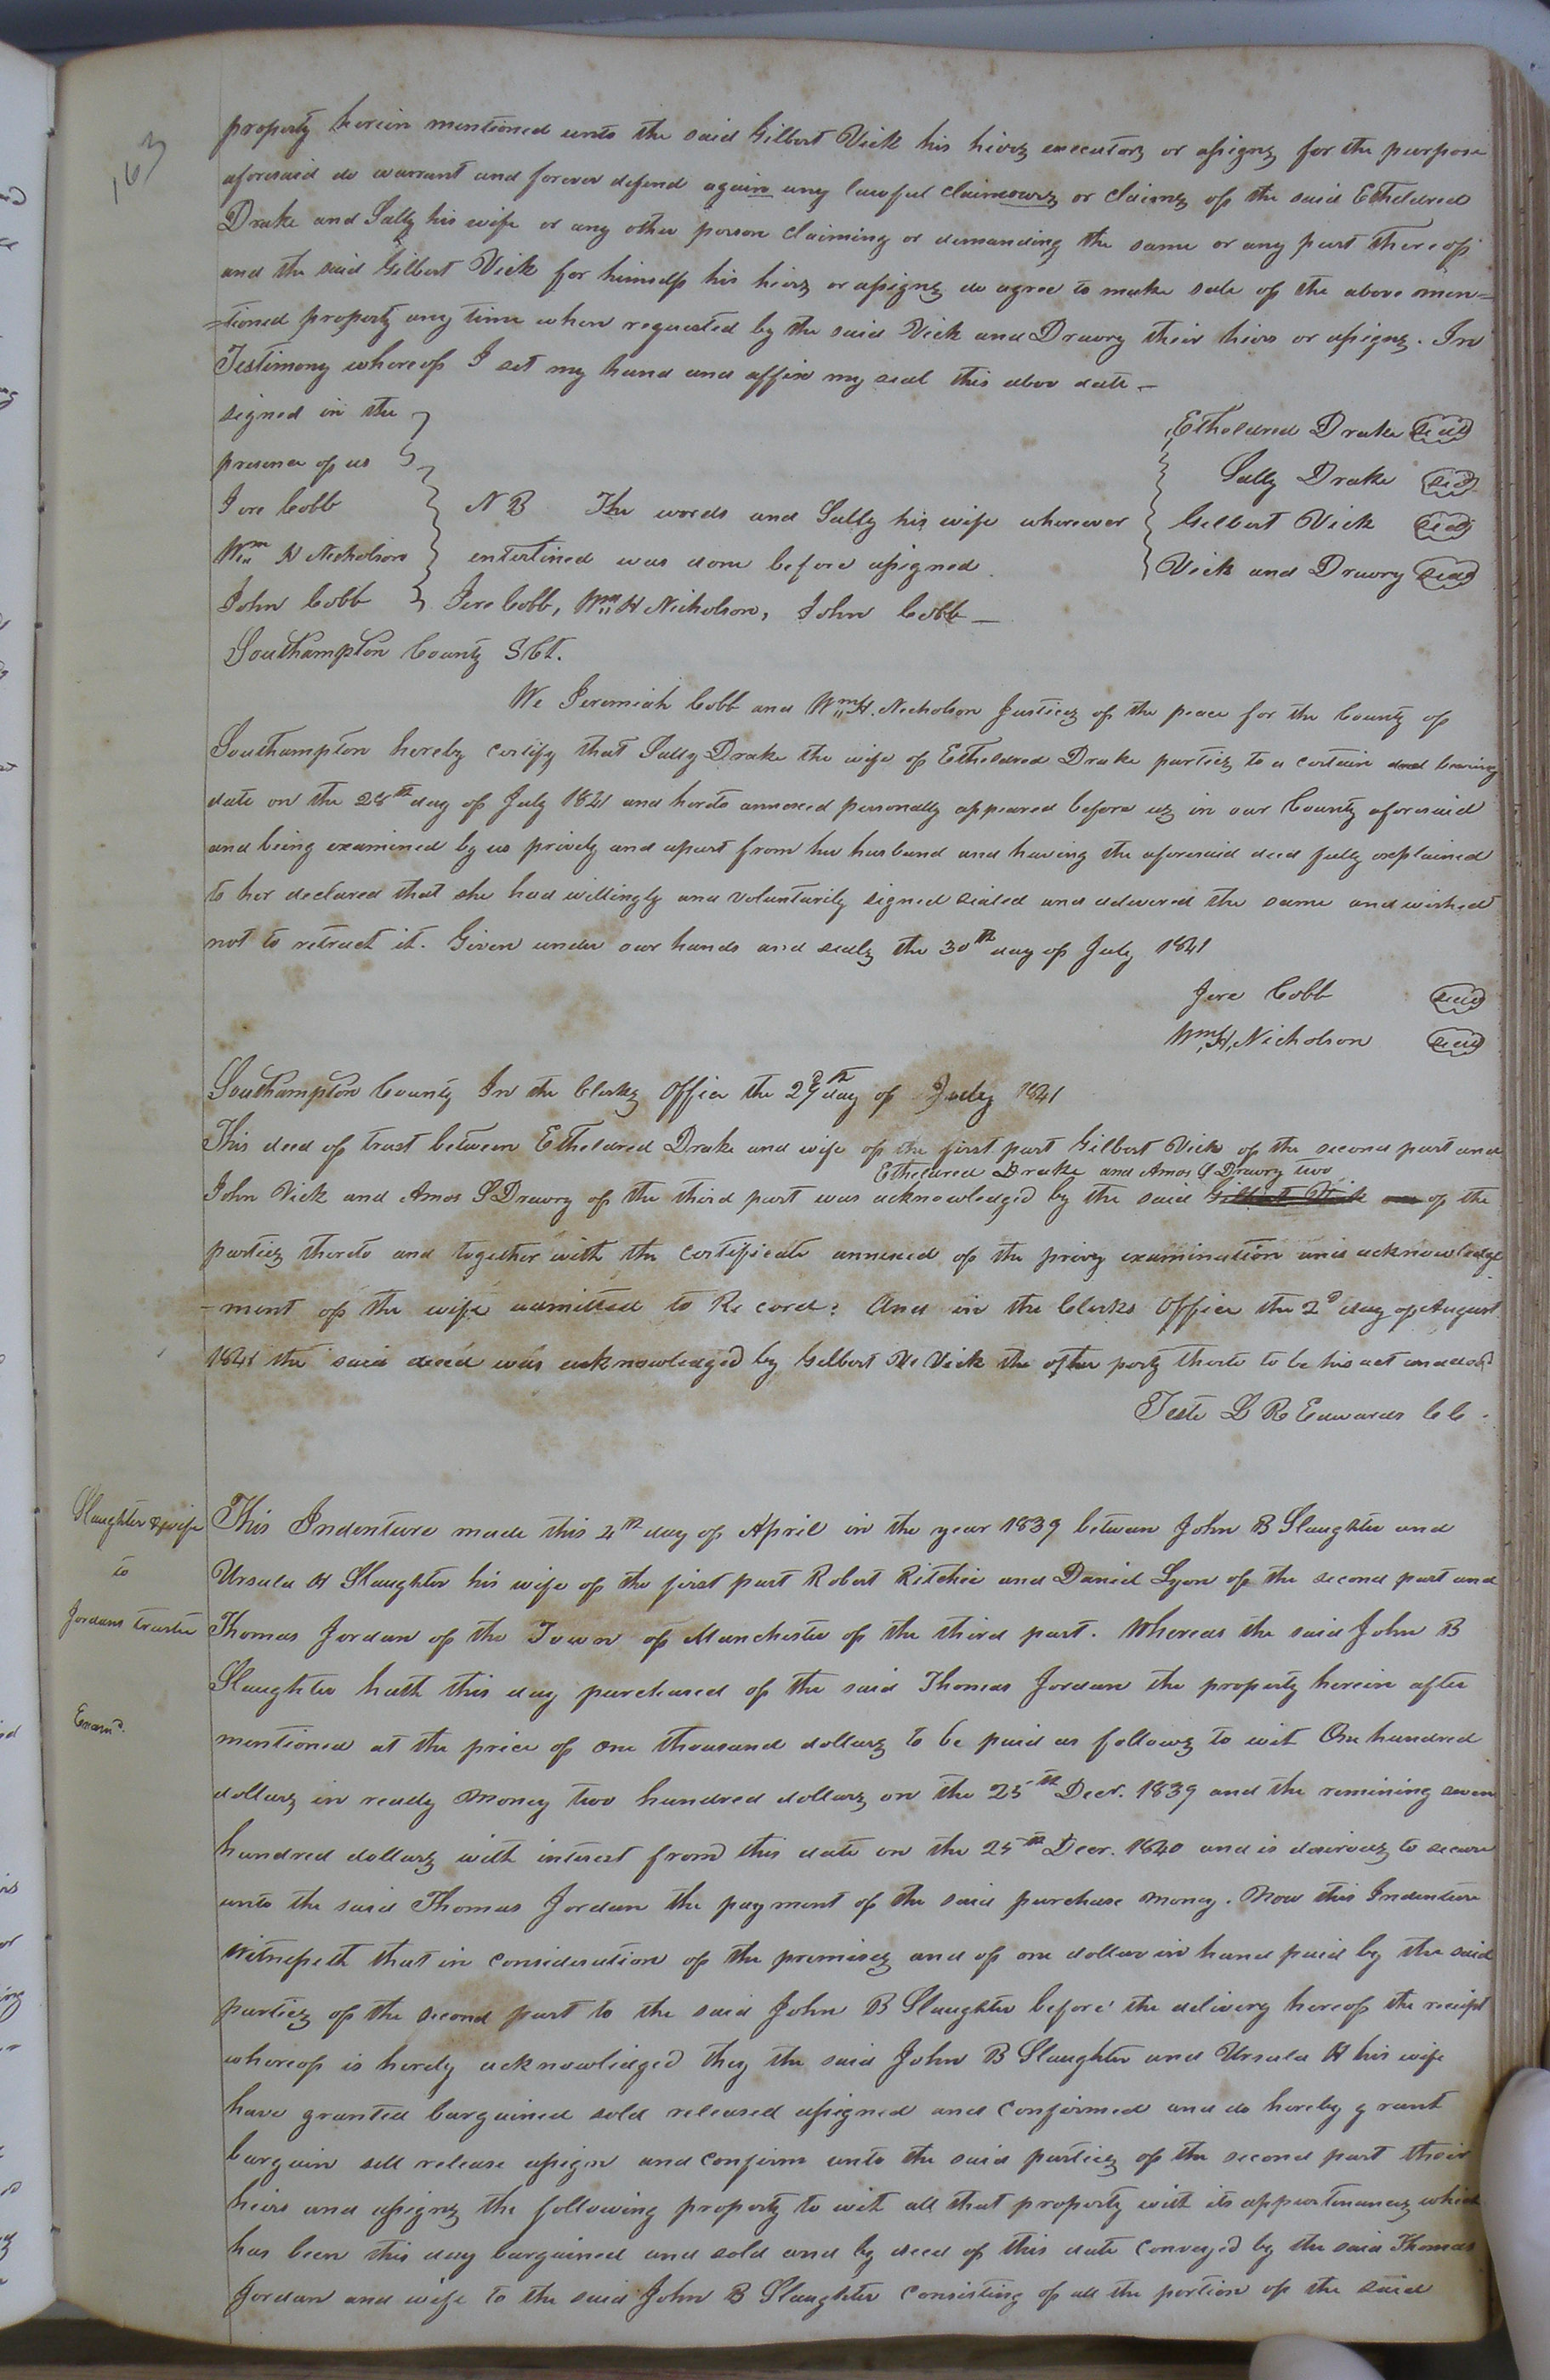 163
property herein mentioned unto the said Gilbert Vick his heirs executors or assigns for the purpose
aforesaid do warrant and forever defend again any lawful claimowers or claims of the said Etheldred
Drake and Sally his wife or any other person claiming or demanding the same or any part thereof
and the said Gilbert Vick for himself his heirs or assigns do agree to make sale of the above men=
=tioned property any time when requested by the said Vick and Drewry their heirs or assigns. In
Testimony whereof I set my hand and affix my seal this abov date —
signed in the
presence of us
Jere Cobb
Wm H Nicholson
John Cobb
N B The words and Sally his wife wherever
enterlined was done before assigned
Jere Cobb, Wm H Nicholson, John Cobb —
Etheldred Drake seal
Sally Drake seal
Gilbert Vick seal
Vick and Drewry seal
Southampton County Sct.
We Jeremiah Cobb and Wm H. Nicholson Justices of the peace for the County of
Southampton hereby certify that Sally Drake the wife of Etheldred Drake parties to a certain deed bearing
date on the 28th day of July 1841 and hereto annexed personally appeared before us in our County aforesaid
and being examined by us privily and apart from her husband and having the aforesaid deed fully explained
to her declared that she had willingly and voluntarily signed sealed and delivered the same and wished
not to retract it. Given under our hands and seals the 30th day of July 1841
Jere Cobb seal
Wm H, Nicholson seal
Southampton County In the Clerks Office the day of July 1841
This deed of trust between Etheldred Drake and wife of the first part Gilbert Vick of the second part and
Etheldred Drake and Amos S Drewry two
John Vick and Amos S Drewry of the third part was acknowledged by the said Gilbert Vick of the
parties thereto and together with the certificate annexed of the privy examination and acknowledge
-ment of the wife admitted to Record: And in the Clerks Office the 2d day of August
1841 the said deed was acknowledged by Gilbert Vick the other party thereto to be his act and deed
Teste L R Edwards CC.
Slaughter & wife
to
Jordans trustee
Examd.
This Indenture made this 4th day of April in the year 1839 between John B Slaughter and
Ursula H Slaughter his wife of the first part Robert Ritchie and Daniel Lyon of the second part and
Thomas Jordan of the Town of Manchester of the third part. Whereas the said John B
Slaughter hath this day purchased of the said Thomas Jordan the property herein after
mentioned at the price of one thousand dollars to be paid as follows to wit One hundred
dollars in ready money two hundred dollars on the 25th Decr. 1839 and the remining seven
hundred dollars with interest from this date on the 25th Decr. 1840 and is desirous to secure
unto the said Thomas Jordan the payment of the said purchase money. Now this Indenture
witnesseth that in consideration of the premises and of one dollar in hand paid by the said
parties of the second part to the said John B Slaughter before the delivery hereof the receipt
whereof is hereby acknowledged they the said John B Slaughter and Ursula H his wife
have granted bargained sold released assigned and confirmed and do hereby grant
bargain sell release assign and confirm unto the said parties of the second part their
heirs and assigns the following property to wit all that property with its appurtenances which
has been this day bargained and sold and by deed of this date conveyed by the said Thomas
Jordan and wife to the said John B Slaughter consisting of all the portion of the said